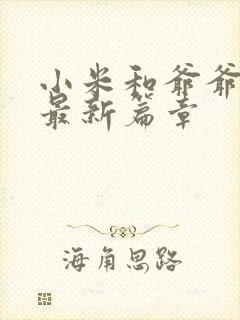 小米和爷爷
最新篇章
海角思路